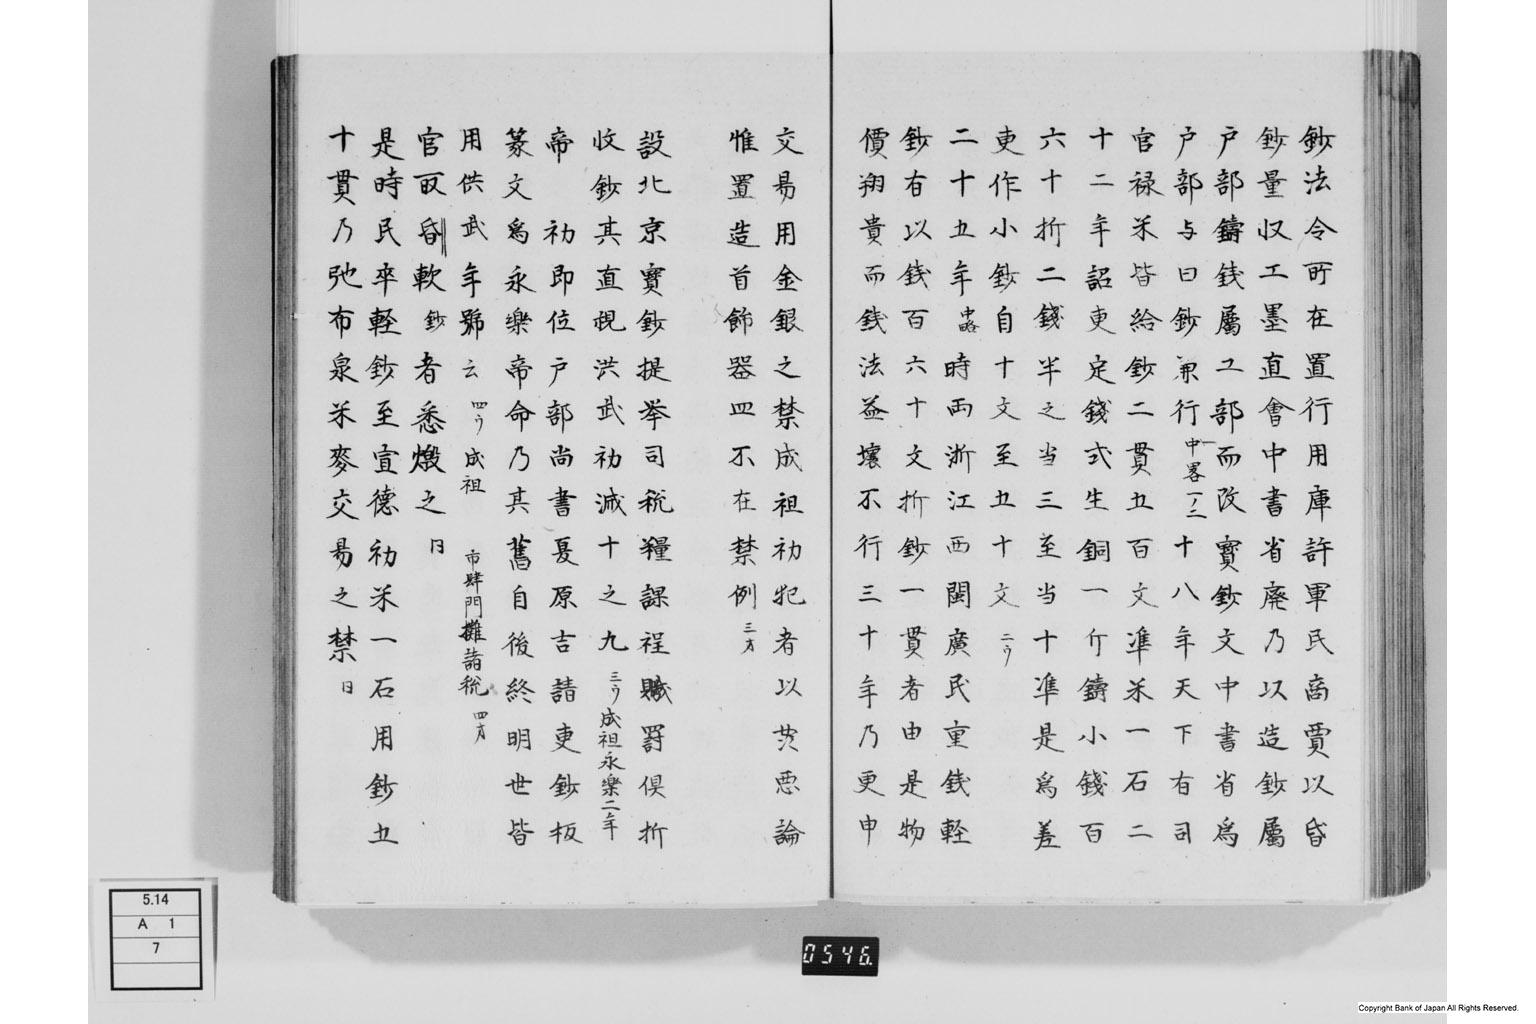 鈔法令所在置行用庫許軍民商賈以昏
鈔量収工墨直會中書省廃乃以造鈔屬
户部鑄銭屬工部而改寳鈔文中書省為
户部与旧鈔兼行中畧一ノ二十八年天下有司
官禄米皆給鈔二貫五百文凖米一石二
十二年詔更定錢式生銅一斤鑄小錢百
六十折二錢半之当三至当十凖是為差
更作小鈔自十文至五十文二ウ
二十五年中略時両浙江西閩廣民重銭軽
鈔有以銭百六十文折鈔一貫者由是物
價翔貴而銭法益壊不行三十年乃更申
交易用金銀之禁成祖初犯者以悪論
惟置造首飾器皿不在禁例三オ
設北京寳鈔提挙司税糧課程贓罸倶折
收鈔其直視洪武初減十之九三ウ成祖永樂二年
帝初即位户部尚書夏原吉請更鈔板
篆文為永樂帝命乃其舊自後終明世皆
用供武年號云四ウ成祖市肆門攤諸税四オ
官取昏軟鈔者悉燬之同
是時民卒軽鈔至宣德初米一石用鈔五
十貫乃弛布泉米麥交易之禁同
5.14
A 1
7
0546.
Copyright Bank of Japan All Rights Reserved.